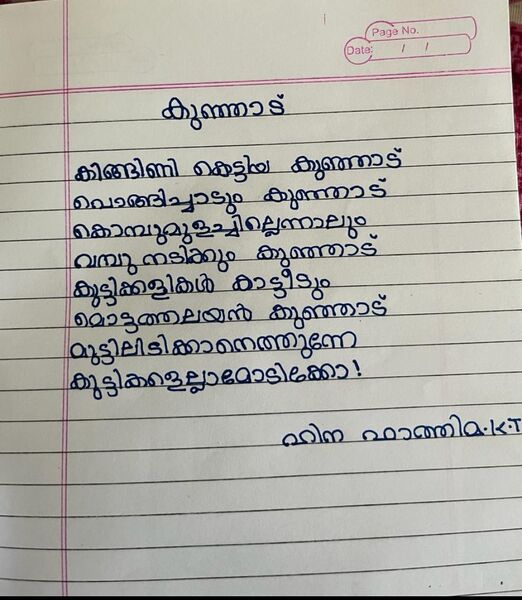 Page No.
Date: / /
കുഞ്ഞാട്
കിങ്ങിണി കെട്ടിയ കുഞ്ഞാട്
പൊങ്ങിച്ചാടും കുഞ്ഞാട്
കൊമ്പുമുളച്ചില്ലെന്നാലും
വമ്പു നടിക്കും കുഞ്ഞാട്
കുട്ടിക്കളികൾ കാട്ടീടും
മൊട്ടത്തലയൻ കുഞ്ഞാട്
മുട്ടിലിടിക്കാനെത്തുന്നേ
കുട്ടികളെല്ലാമോടിക്കോ!
ഹിന ഫാത്തിമ.K.T